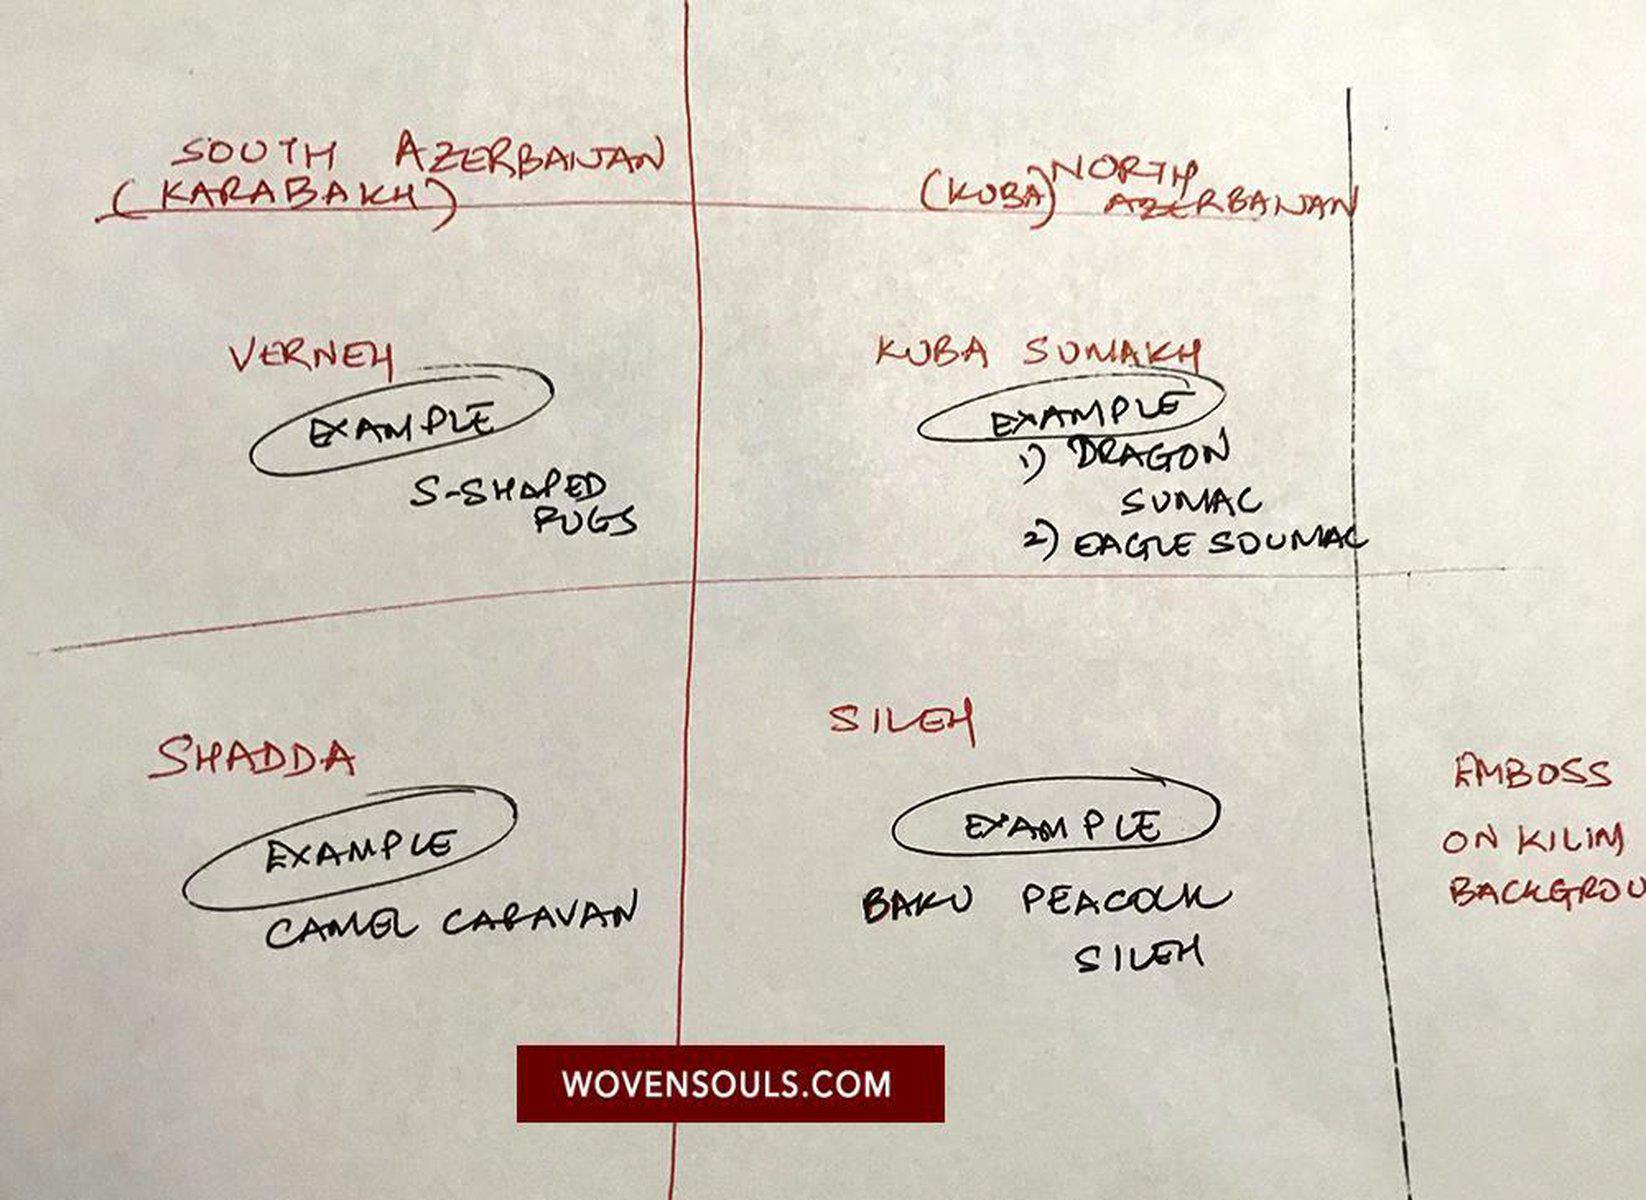 SOUTH AZERBAIJAN
(KARABAKH)
(KUBA) NORTH
AZERBAIJAN
VERNEH
EXAMPLE
S-SHAPED
RUGS
KUBA SUMAKH
EXAMPLE
1) DRAGON
SUMAC
2) EAGLE SOUMAC
SHADDA
EXAMPLE
CAMEL CARAVAN
SILEH
EXAMPLE
BAKU PEACOCK
SILEH
EMBOSS
ON KILIM
BACKGROU
WOVENSOULS.COM